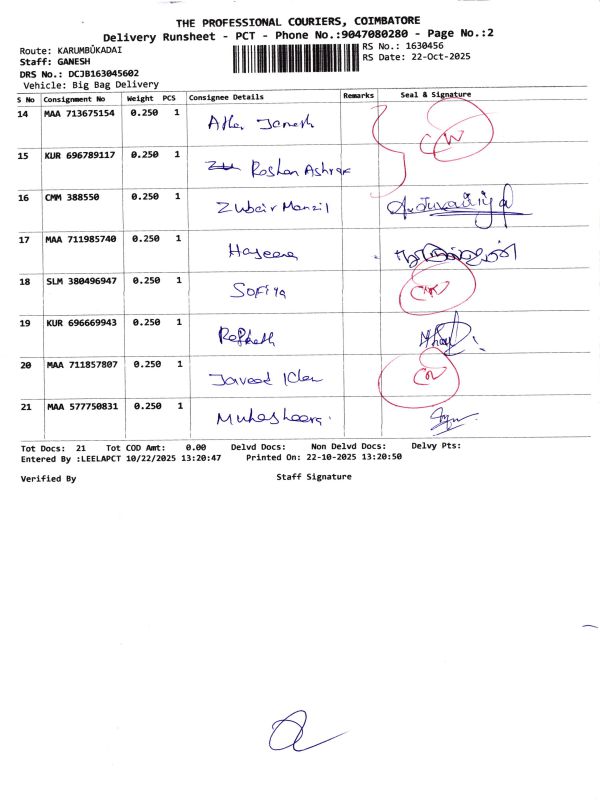 THE PROFESSIONAL COURIERS, COIMBATORE
Delivery Runsheet - PCT - Phone No.:9047080280 - Page No.:2
Route: KARUMBUKADAI RS No.: 1630456
Staff: GANESH RS Date: 22-Oct-2025
DRS No.: DCJB163045602
Vehicle: Big Bag Delivery
S No Consignment No Weight PCS Consignee Details Remarks Seal & Signature
14 MAA 713675154 0.250 1
15 KUR 696789117 0.250 1 Roshan Ashraf
16 CMM 388550 0.250 1 Zubair Manzil
17 MAA 711985740 0.250 1 Haseena
18 SLM 380496947 0.250 1 Sofiya
19 KUR 696669943 0.250 1
20 MAA 711857807 0.250 1 Javeed
21 MAA 577750831 0.250 1
Tot Docs: 21 Tot COD Amt: 0.00 Delvd Docs: Non Delvd Docs: Delvy Pts:
Entered By :LEELAPCT 10/22/2025 13:20:47 Printed On: 22-10-2025 13:20:50
Verified By Staff Signature